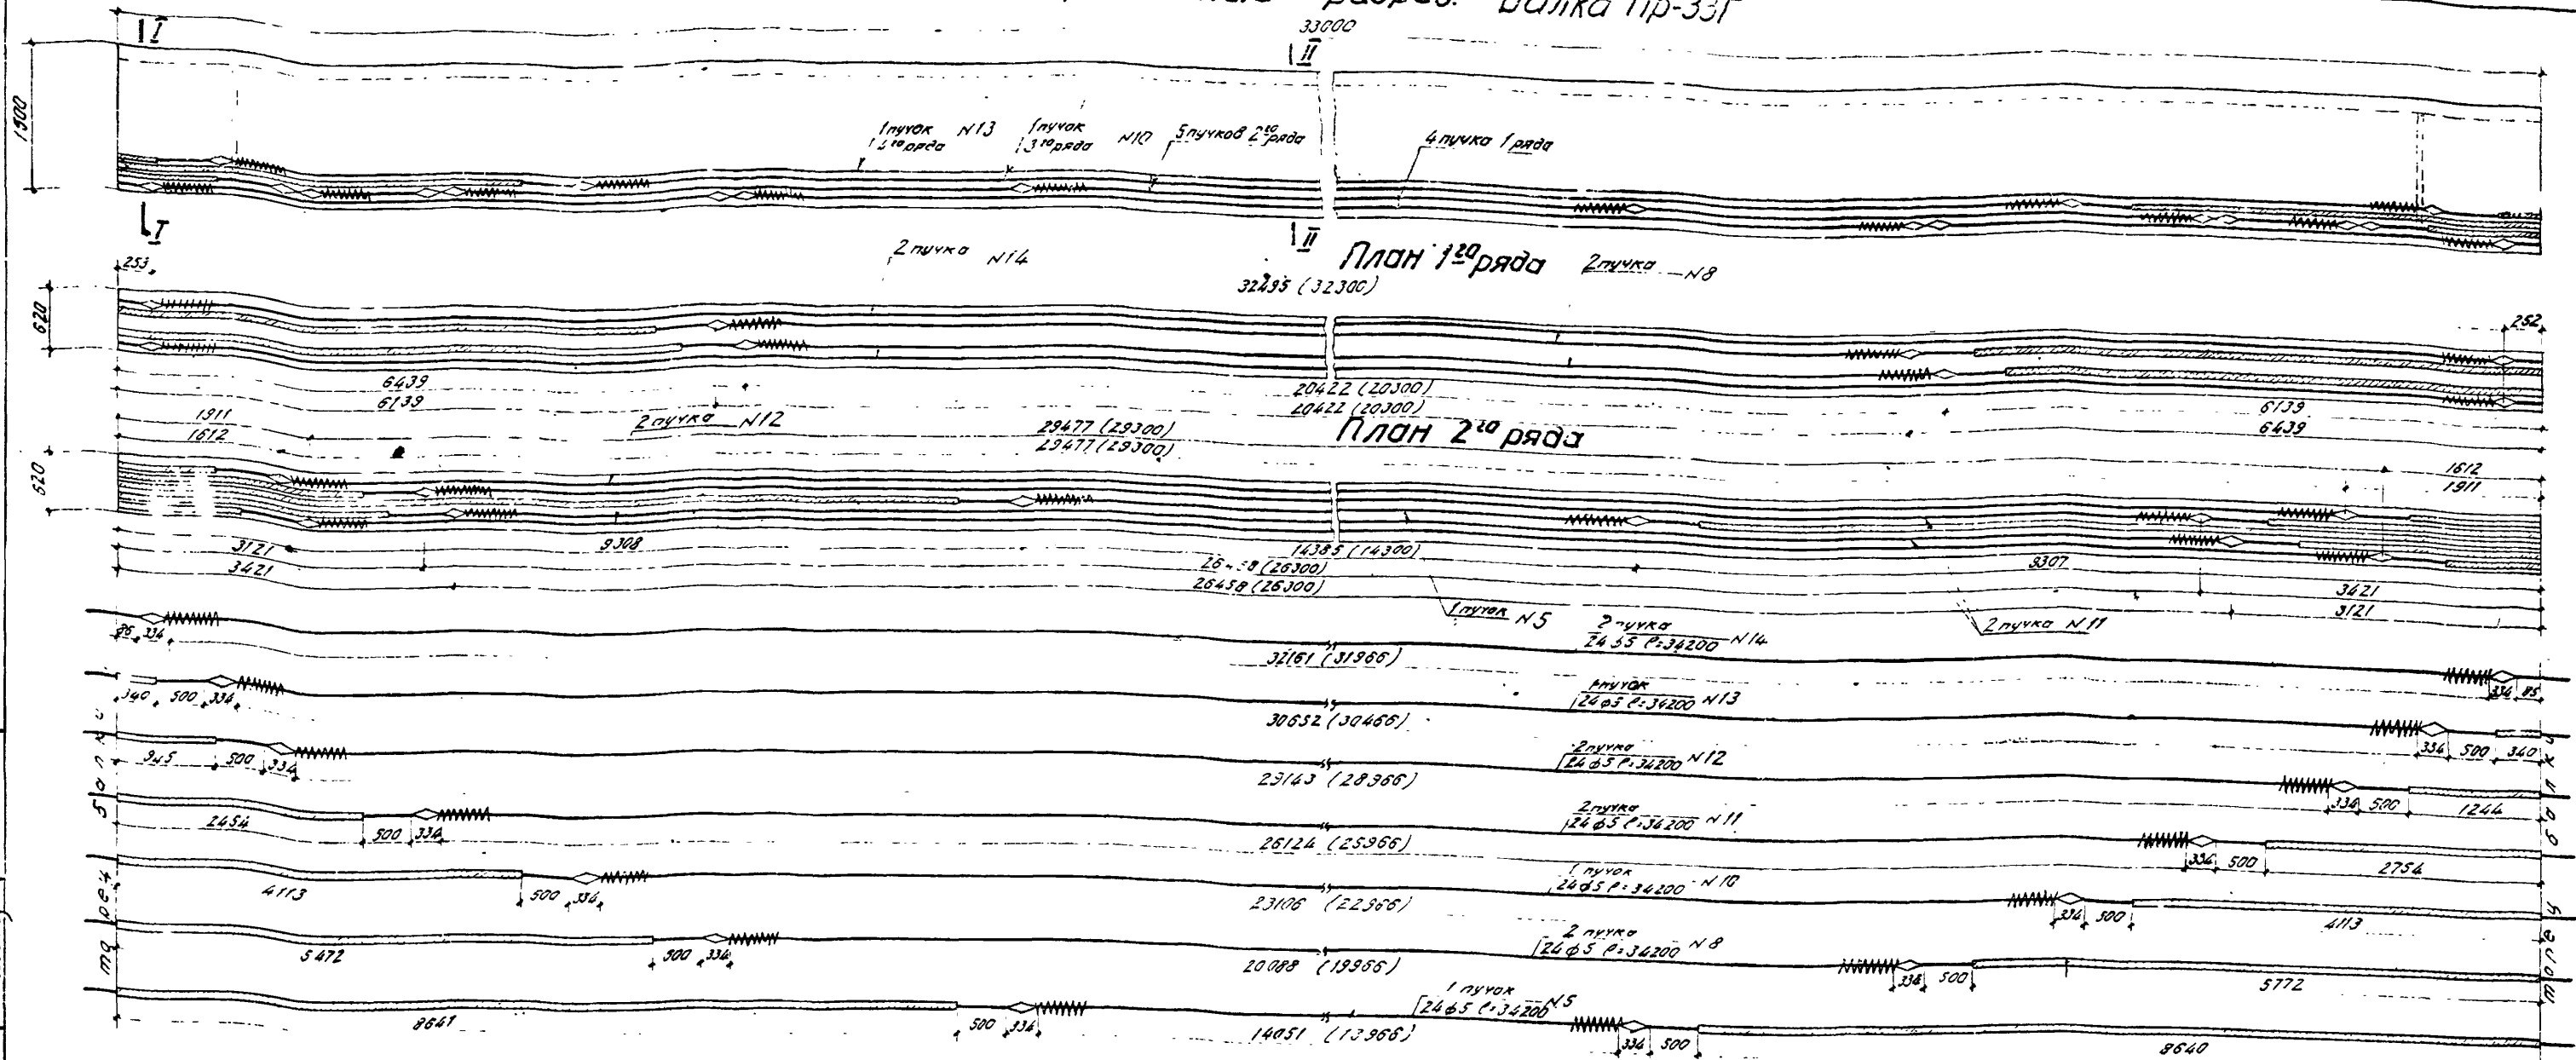 разрез. Балка Пр-33Г
33000
I
II
1500
1 пучок
2го ряда
N13
1 пучок
3го ряда
N10
5 пучков 2го ряда
4 пучка 1 ряда
I
II
План 1го ряда
253
2 пучка N14
2 пучка N8
32495 (32300)
620
252
6439
6139
20422 (20300)
20422 (20300)
6139
6439
1911
1612
2 пучка N12
29477 (29300)
29477 (29300)
План 2го ряда
1612
1911
620
3121
3421
9308
14385 (14300)
26458 (26300)
26458 (26300)
9307
3421
3121
1 пучок N5
2 пучка N11
85 334
2 пучка
24ф5 ℓ=34200 N14
32161 (31966)
334 85
340 500 334
1 пучок
24ф5 ℓ=34200 N13
30652 (30466)
334 500 340
945 500 334
2 пучка
24ф5 ℓ=34200 N12
29143 (28966)
334 500 1244
2454 500 334
2 пучка
24ф5 ℓ=34200 N11
26124 (25966)
334 500 2754
4113 500 334
1 пучок
24ф5 ℓ=34200 N10
23106 (22966)
334 500 4113
5472 500 334
2 пучка
24ф5 ℓ=34200 N8
20088 (19966)
334 500 5772
8641 500 334
1 пучок
24ф5 ℓ=34200 N5
14051 (13966)
334 500 8640